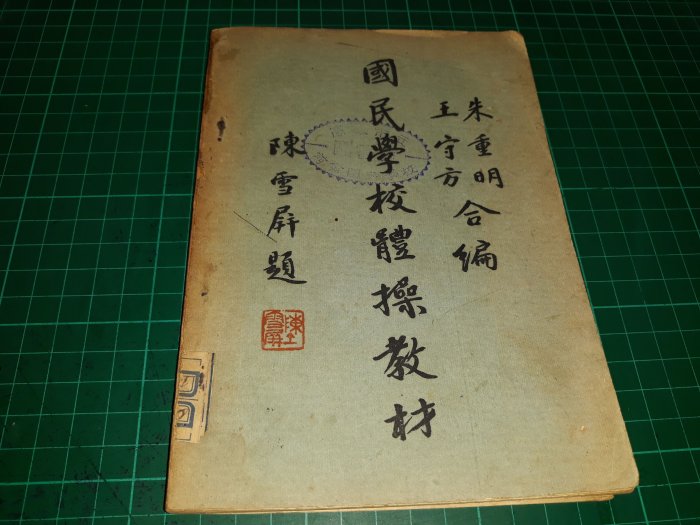 朱重明
王守方
合編
國民學校體操教材
陳雪屏題